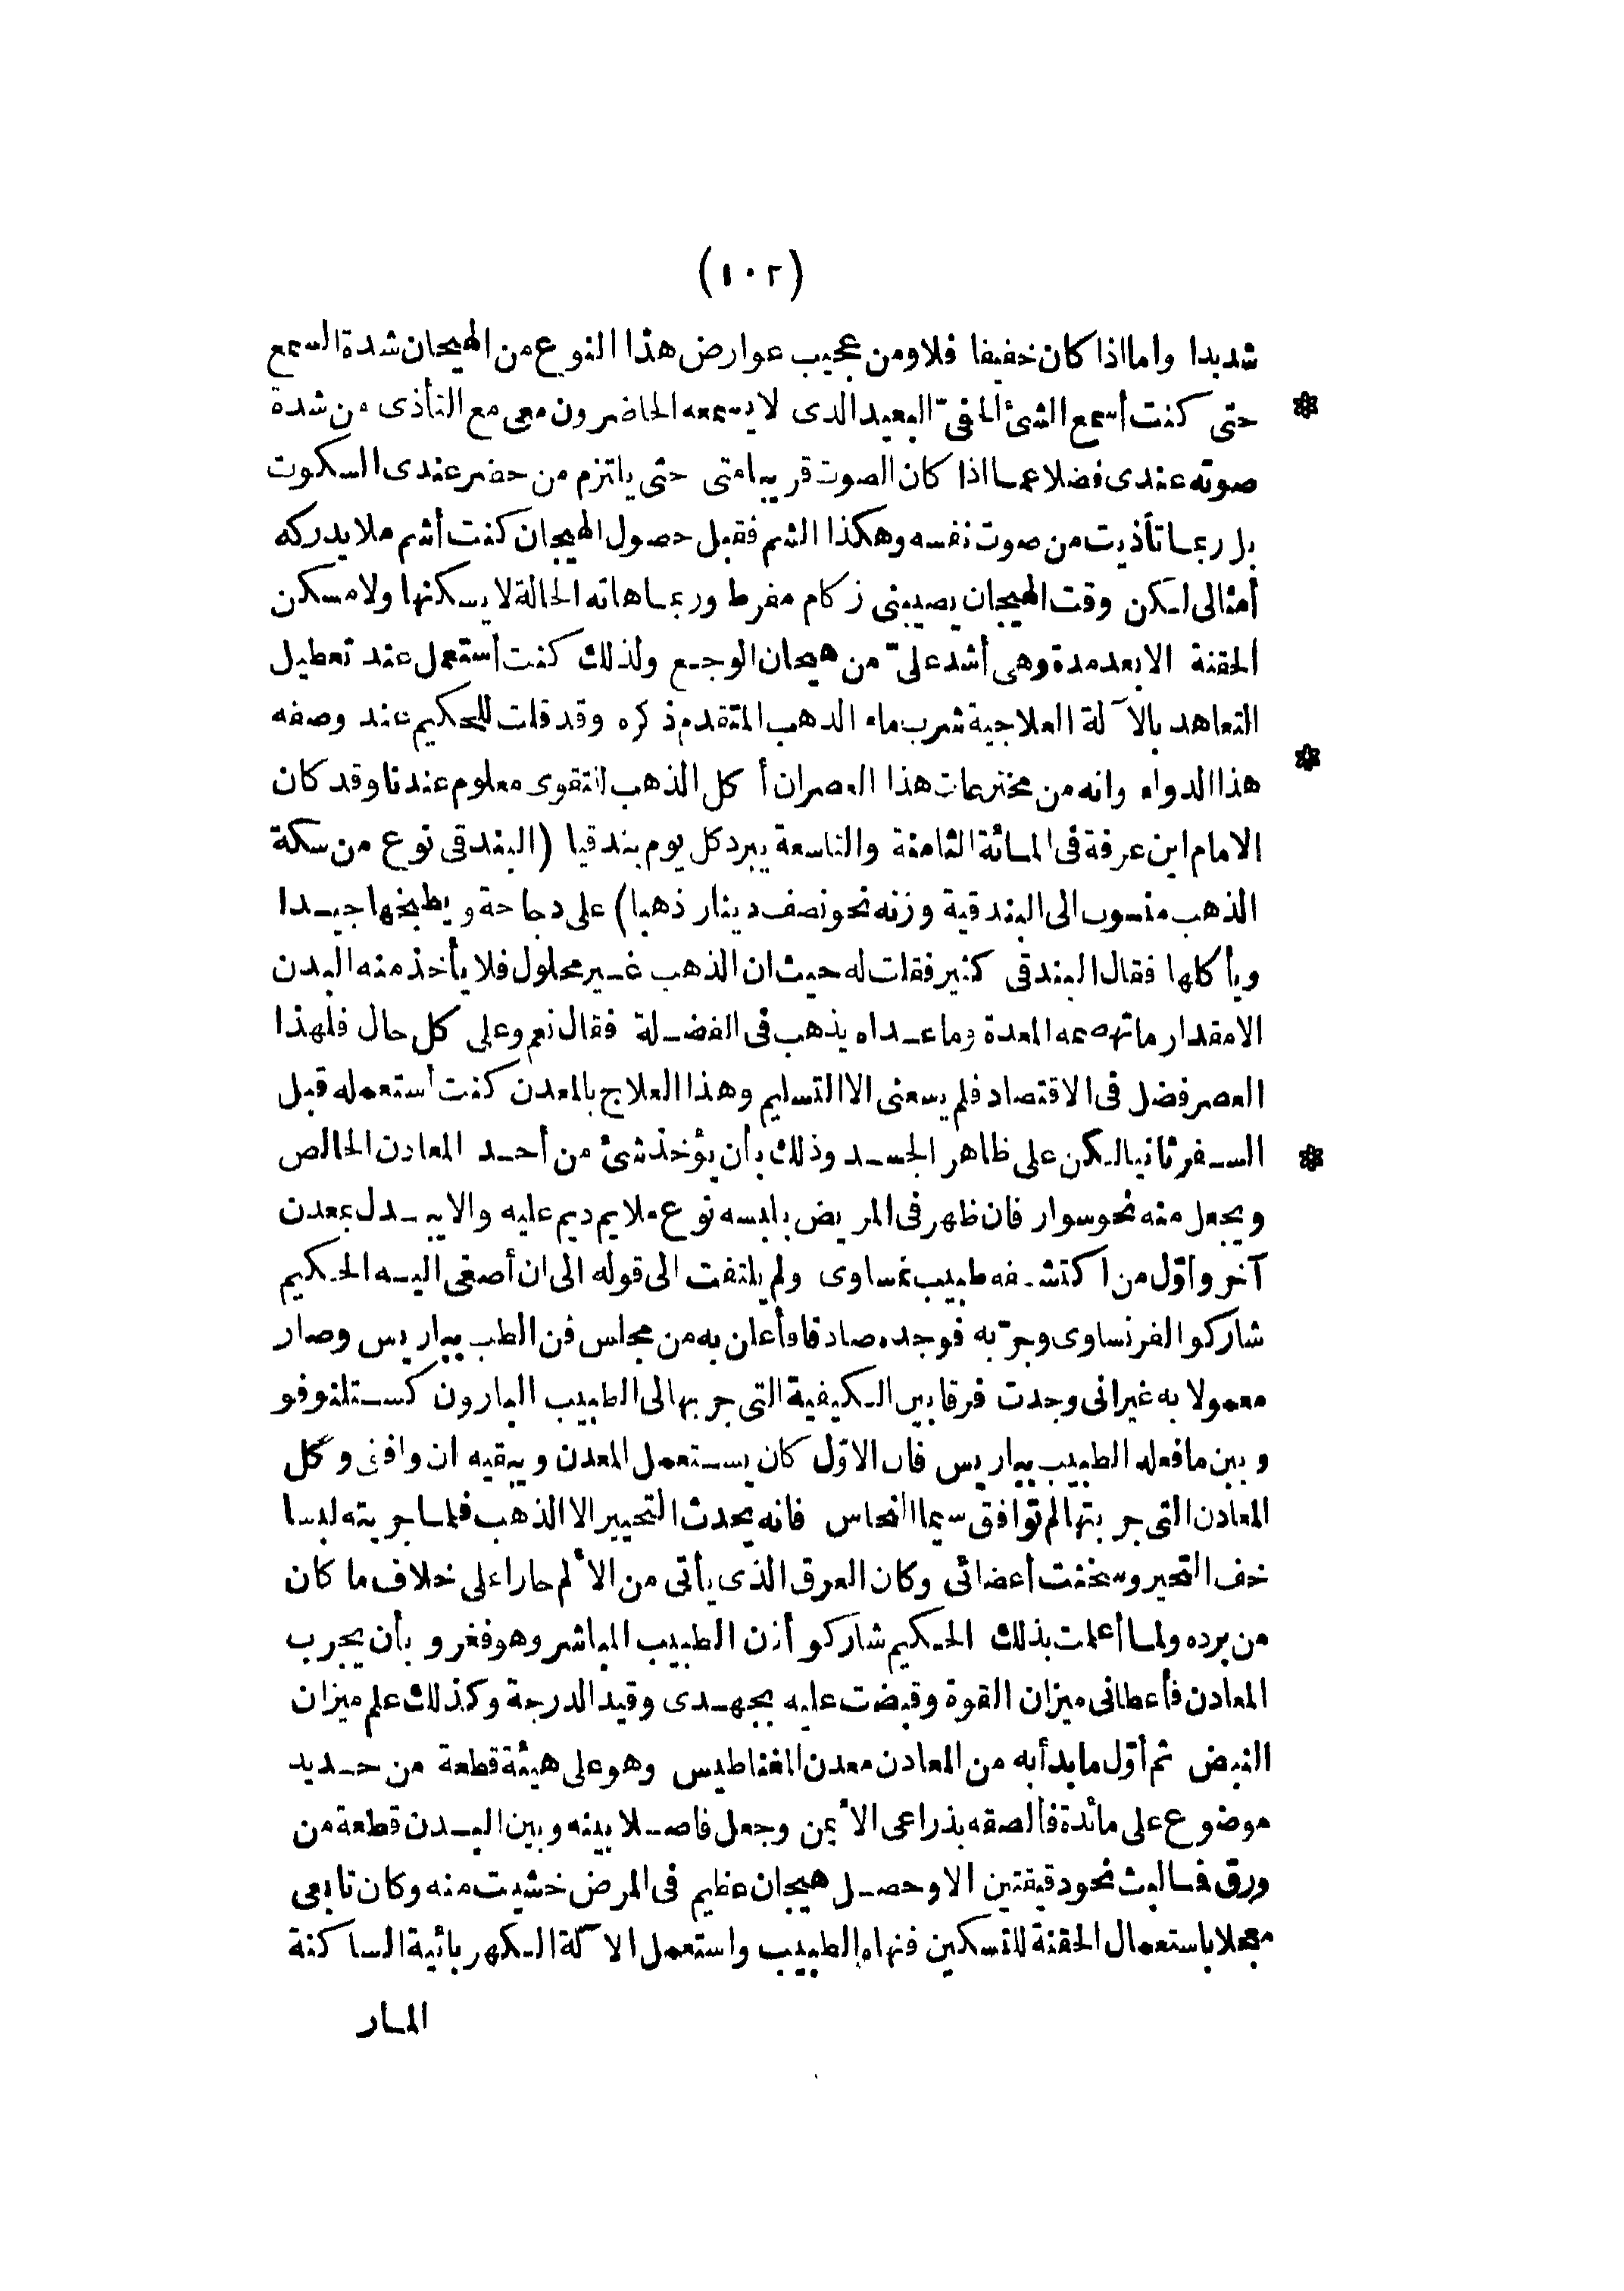 (١٠٢)
شديدا واما اذا كان خفيفا فلا ومن عجيب عوارض هذا النوع من الهيجان شدة السمع
* حتى كنت أسمع الشئ الخفىّ البعيد الذى لا يسمعه الحاضرون معى مع التأذى من شدة
صوته عندى فضلا عما اذا كان الصوت قريبا متى حتى يلتزم من حضر عندى السكوت
بل ربما تأذيت من صوت نفسه وهكذا الشم فقبل حصول الهيجان كنت أشم ملا يدركه
أمثالى لكن وقت الهيجان يصيبنى زكام مفرط وربما هاته الحالة لا يسكنها ولا مسكن
الحقنة الا بعد مدة وهى أشد علىّ من هيجان الوجع ولذلك كنت أستعمل عند تعطيل
التعاهد بالآلة العلاجية شرب ماء الذهب المتقدم ذكره وقد قلت للحكيم عند وصفه
* هذا الدواء وانه من مخترعات هذا العصر ان أكل الذهب لتقوى معلوم عندنا وقد كان
الامام ابن عرفة فى المائة الثامنة والتاسعة يبرد كل يوم بندقيا (البندقى نوع من سكة
الذهب منسوب الى البندقية وزنه نحو نصف دينار ذهبا) على دجاجة ويطبخها جيدا
ويأكلها فقال البندقى كثير فقلت له حيث ان الذهب غير محلول فلا يأخذ منه البدن
الا مقدار ما تهضمه المعدة وما عداه يذهب فى الفضلة فقال نعم وعلى كل حال فلهذا
العصر فضل فى الاقتصاد فلم يسعنى الا التسليم وهذا العلاج بالمعدن كنت أستعمله قبل
* السفر ثانيا لكن على ظاهر الجسد وذلك بأن يؤخذ شئ من أحد المعادن الخالص
ويجعل منه نحو سوار فان ظهر فى المريض بلبسه نوع ملايم ديم عليه والا يبدل بمعدن
آخر وأوّل من اكتشفه طبيب نمساوى ولم يلتفت الى قوله الى ان أصغى اليه الحكيم
شاركو الفرنساوى وجرّبه فوجده صادقا وأعلن به من مجلس فن الطب بباريس وصار
معمولا به غير انى وجدت فرقا بين الكيفية التى جربها لى الطبيب البارون كستلنوفو
وبين ما فعله الطبيب بباريس فان الاوّل كان يستعمل المعدن ويبقيه ان وافق وكل
المعادن التى جربتها لم توافق سيما النحاس فانه يحدث التحيير الا الذهب فلما جربته لبسا
خف التحير وسخنت أعضائى وكان العرق الذى يأتى من الألم حارا على خلاف ما كان
من برده ولما أعلمت بذلك الحكيم شاركو أذن الطبيب المباشر وهو فغرو بأن يجرب
المعادن فأعطانى ميزان القوة وقبضت عليه بجهدى وقيد الدرجة وكذلك علم ميزان
النبض ثم أوّل ما بدأ به من المعادن معدن المغناطيس وهو على هيئة قطعة من حديد
موضوع على مائدة فألصقه بذراعى الأيمن وجعل فاصلا بينه وبين البدن قطعة من
ورق فما لبث نحو دقيقتين الا وحصل هيجان عظيم فى المرض خشيت منه وكان تابعى
معجلا باستعمال الحقنة للتسكين فنهاه الطبيب واستعمل الآلة الكهربائية الساكنة
المار